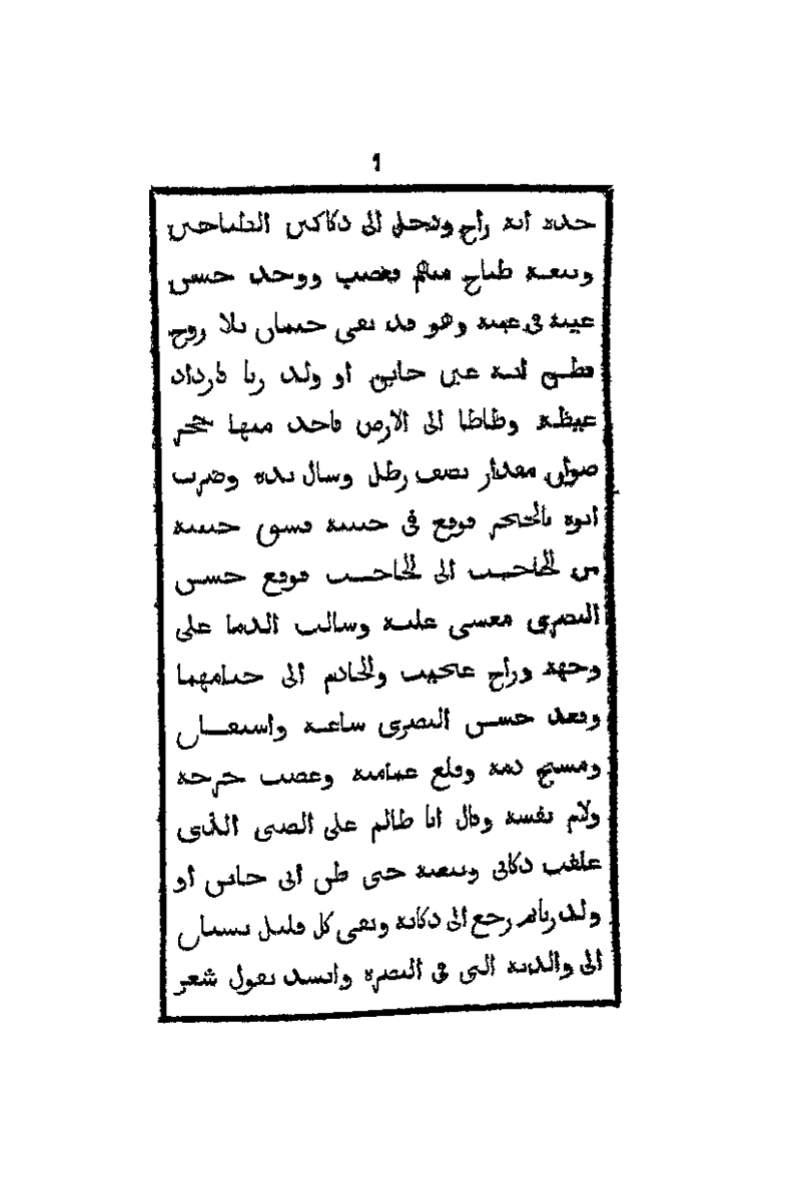 1
حده انه راح ودخل الى دكاكين الطباخين
وتبعه طباخ منهم فغضب ووجد حسن
عينه فى عينه وهو قد بقى جسمان بلا روح
فظن انه عين خاين او ولد زنا فازداد
غيظه وطاطا الى الارض فاخد منها حجر
صوان مقدار نصف رطل وسال يده وضرب
ابوه بالحجر فوقع فى جبينه فشق جبينه
من الحاجب الى الحاجب فوقع حسن
البصرى مغشى عليه وسالت الدما على
وجهه وراح عاجيب والخادم الى خيامهما
وقعد حسن البصرى ساعه واستفاق
ومسح دمه وقلع عمامته وعصب جرحه
ولام نفسه وقال انا ظالم على الصبى الذى
غلقت دكانى وتبعته حتى ظن انى خاين او
ولد زنا ثم رجع الى دكانه وبقى كل قليل يشتاق
الى والدته التى فى البصره وانشد يقول شعر